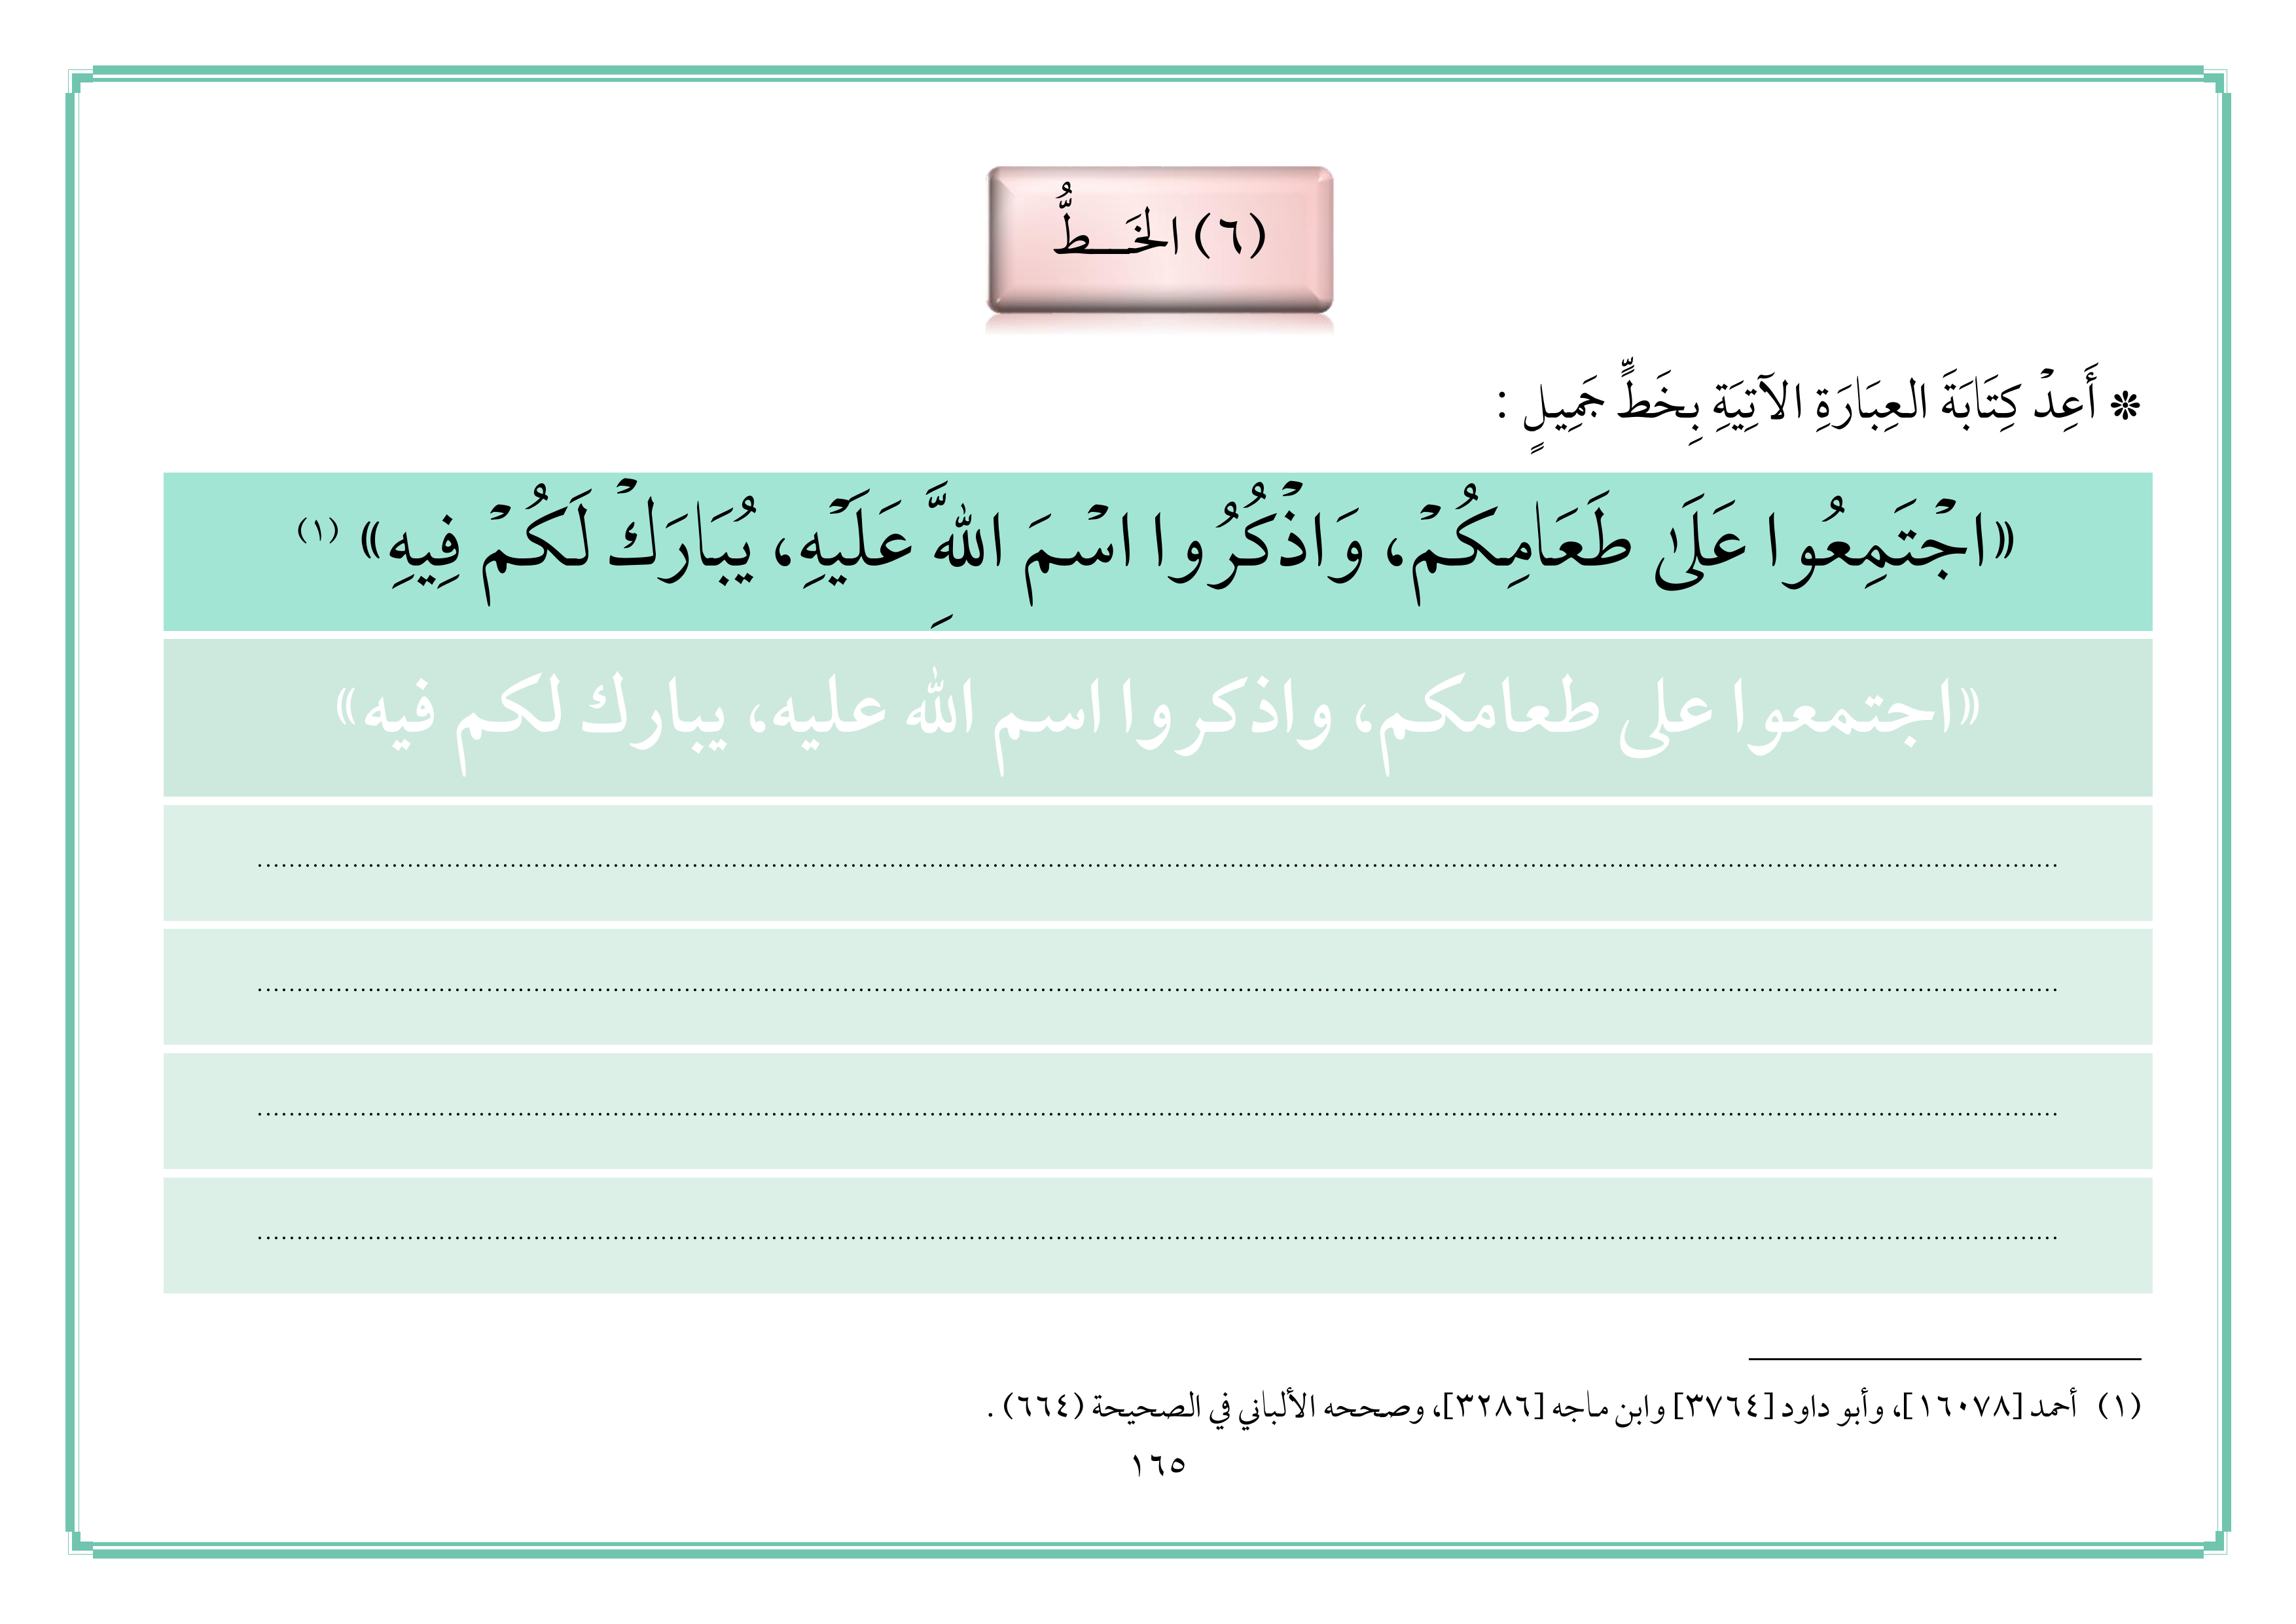 (٦) الخَـــطُّ
❊ أَعِدْ كِتَابَةَ العِبَارَةِ الآتِيَةِ بِخَطٍّ جَمِيلٍ :
((اجْتَمِعُوا عَلَىٰ طَعَامِكُمْ، وَاذْكُرُوا اسْمَ اللهَِّ عَلَيْهِ، يُبَارَكْ لَكُمْ فِيهِ)) (١)
((اجتمعوا على طعامكم، واذكروا اسم الله عليه، يبارك لكم فيه))
(١) أحمد [١٦٠٧٨]، وأبو داود [٣٧٦٤] وابن ماجه [٣٢٨٦]، وصححه الألباني في الصحيحة (٦٦٤) .
١٦٥